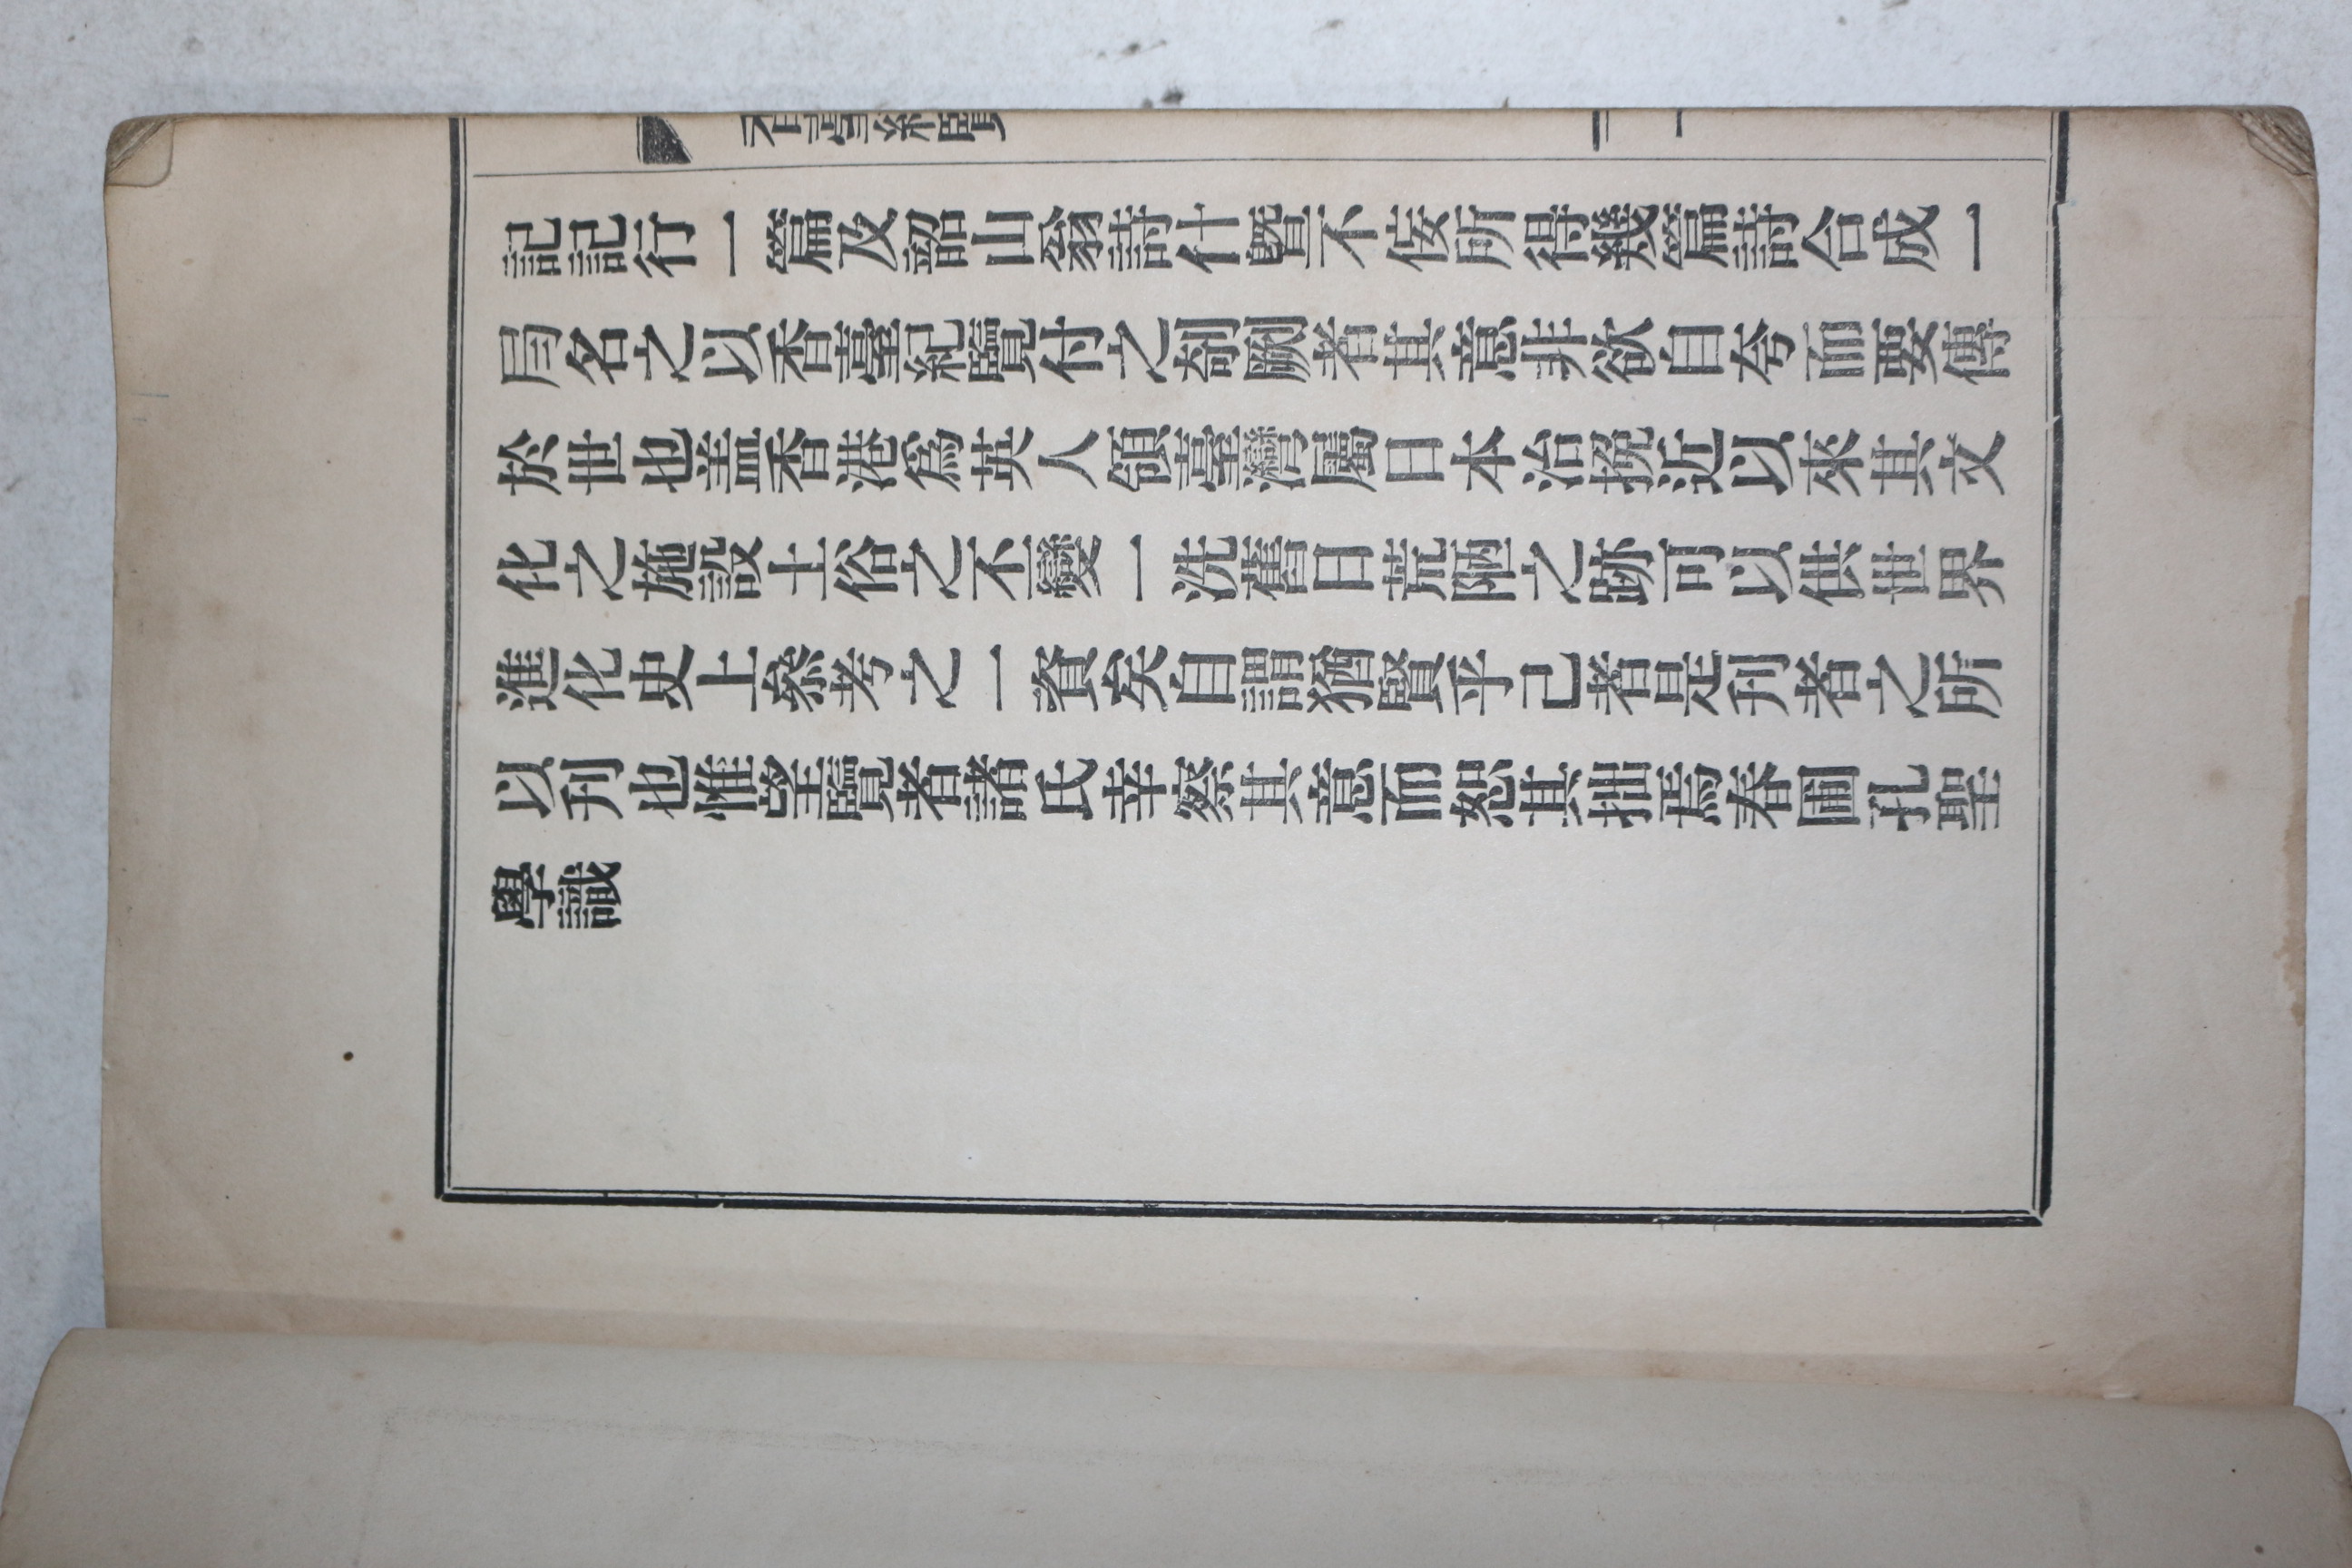 香臺紀覽
記記行一篇及韶山翁詩什曁不佞所得幾篇詩合成一
咼名之以香臺紀覽付之剞劂者其意非欲自夸而要傳
於世也盖香港爲英人領臺灣屬日本治挽近以來其文
化之施設土俗之不變一洗舊日荒陋之跡可以供世界
進化史上叅考之一資矣自謂猶賢乎己者是刊者之所
以刊也惟望覽者諸氏幸察其意而恕其拙焉春圃孔聖
學識